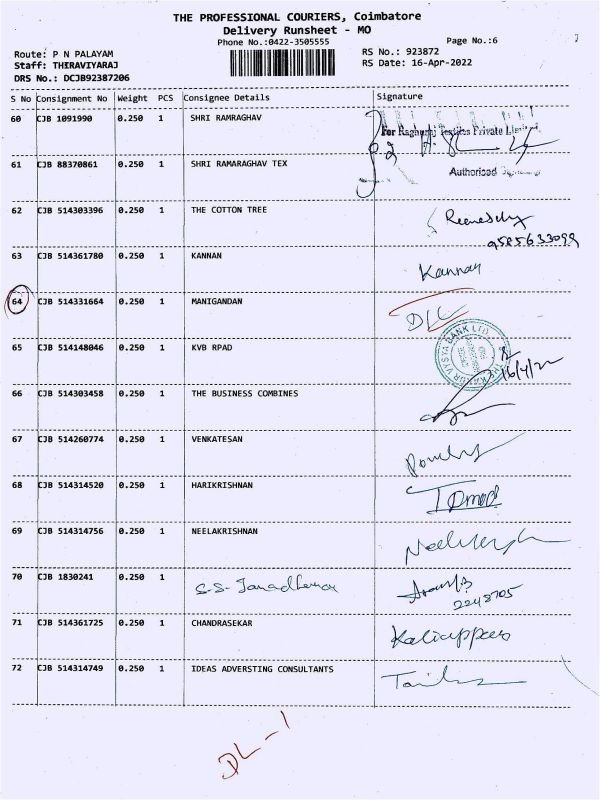 THE PROFESSIONAL COURIERS, Coimbatore
Delivery Runsheet - MO
Phone No.:0422-3505555
Page No.:6
Route: P N PALAYAM
RS No.: 923872
Staff: THIRAVIYARAJ
RS Date: 16-Apr-2022
DRS No.: DCJB92387206
S No Consignment No Weight PCS Consignee Details Signature
60 CJB 1091990 0.250 1 SHRI RAMRAGHAV
For Private Limited
61 CJB 88370861 0.250 1 SHRI RAMARAGHAV TEX
Authorised
62 CJB 514303396 0.250 1 THE COTTON TREE
9585633099
63 CJB 514361780 0.250 1 KANNAN Kannan
64 CJB 514331664 0.250 1 MANIGANDAN
65 CJB 514148046 0.250 1 KVB RPAD
VYSYA BANK LTD
16/4/22
66 CJB 514303458 0.250 1 THE BUSINESS COMBINES
67 CJB 514260774 0.250 1 VENKATESAN
68 CJB 514314520 0.250 1 HARIKRISHNAN
69 CJB 514314756 0.250 1 NEELAKRISHNAN
70 CJB 1830241 0.250 1 S-S-
2248705
71 CJB 514361725 0.250 1 CHANDRASEKAR
72 CJB 514314749 0.250 1 IDEAS ADVERSTING CONSULTANTS
DL-1